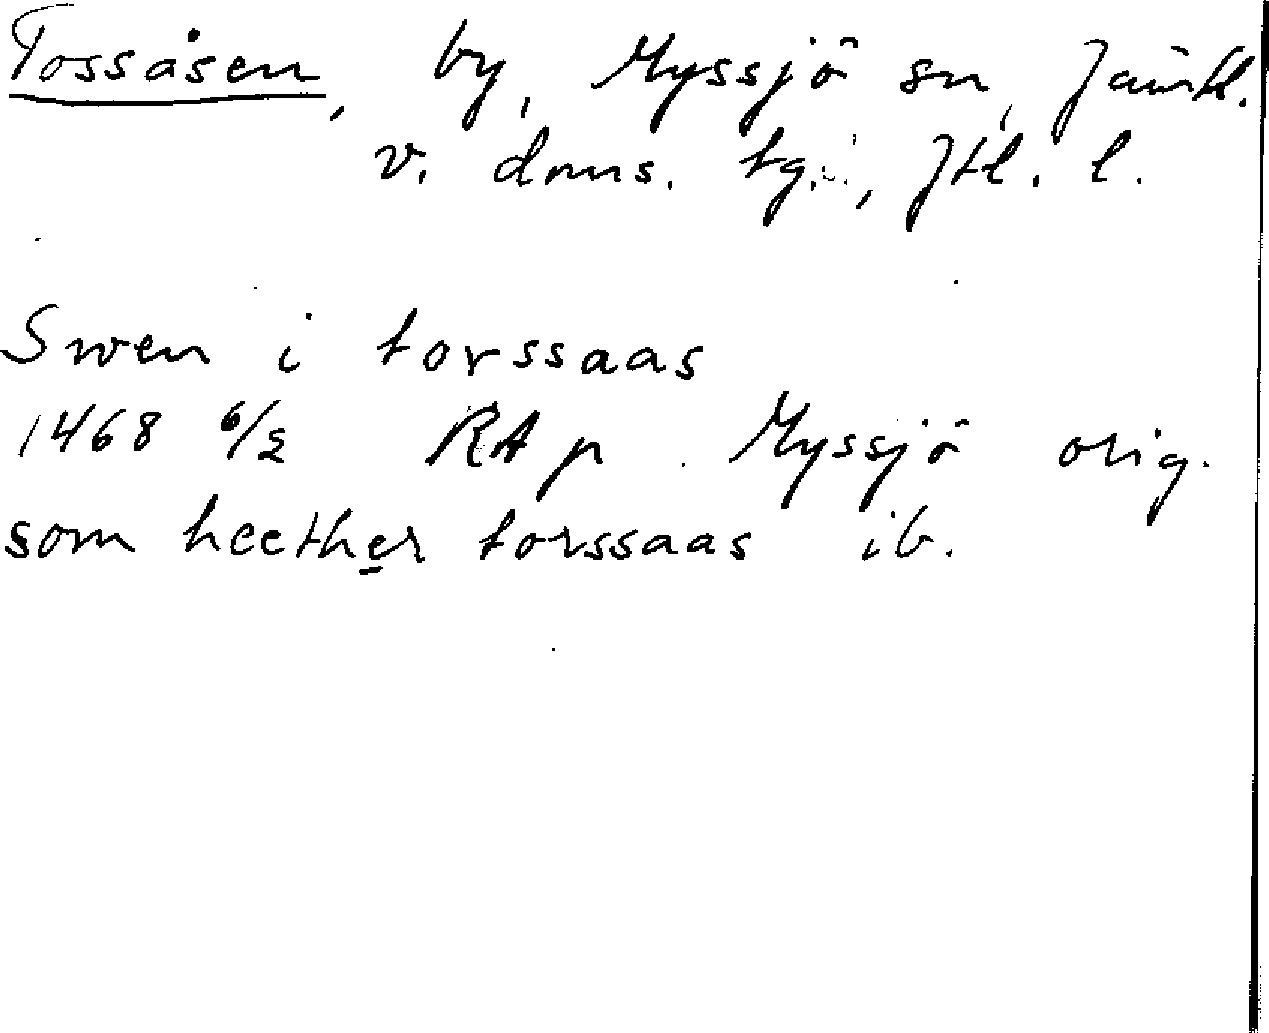 Tossåsen, by, Myssjö sn, Jämtl.
v. doms. tg., Jtl. l.
Swen i torssaas
1468 6/2 RA p Myssjö orig.
som heether torssaas ib.